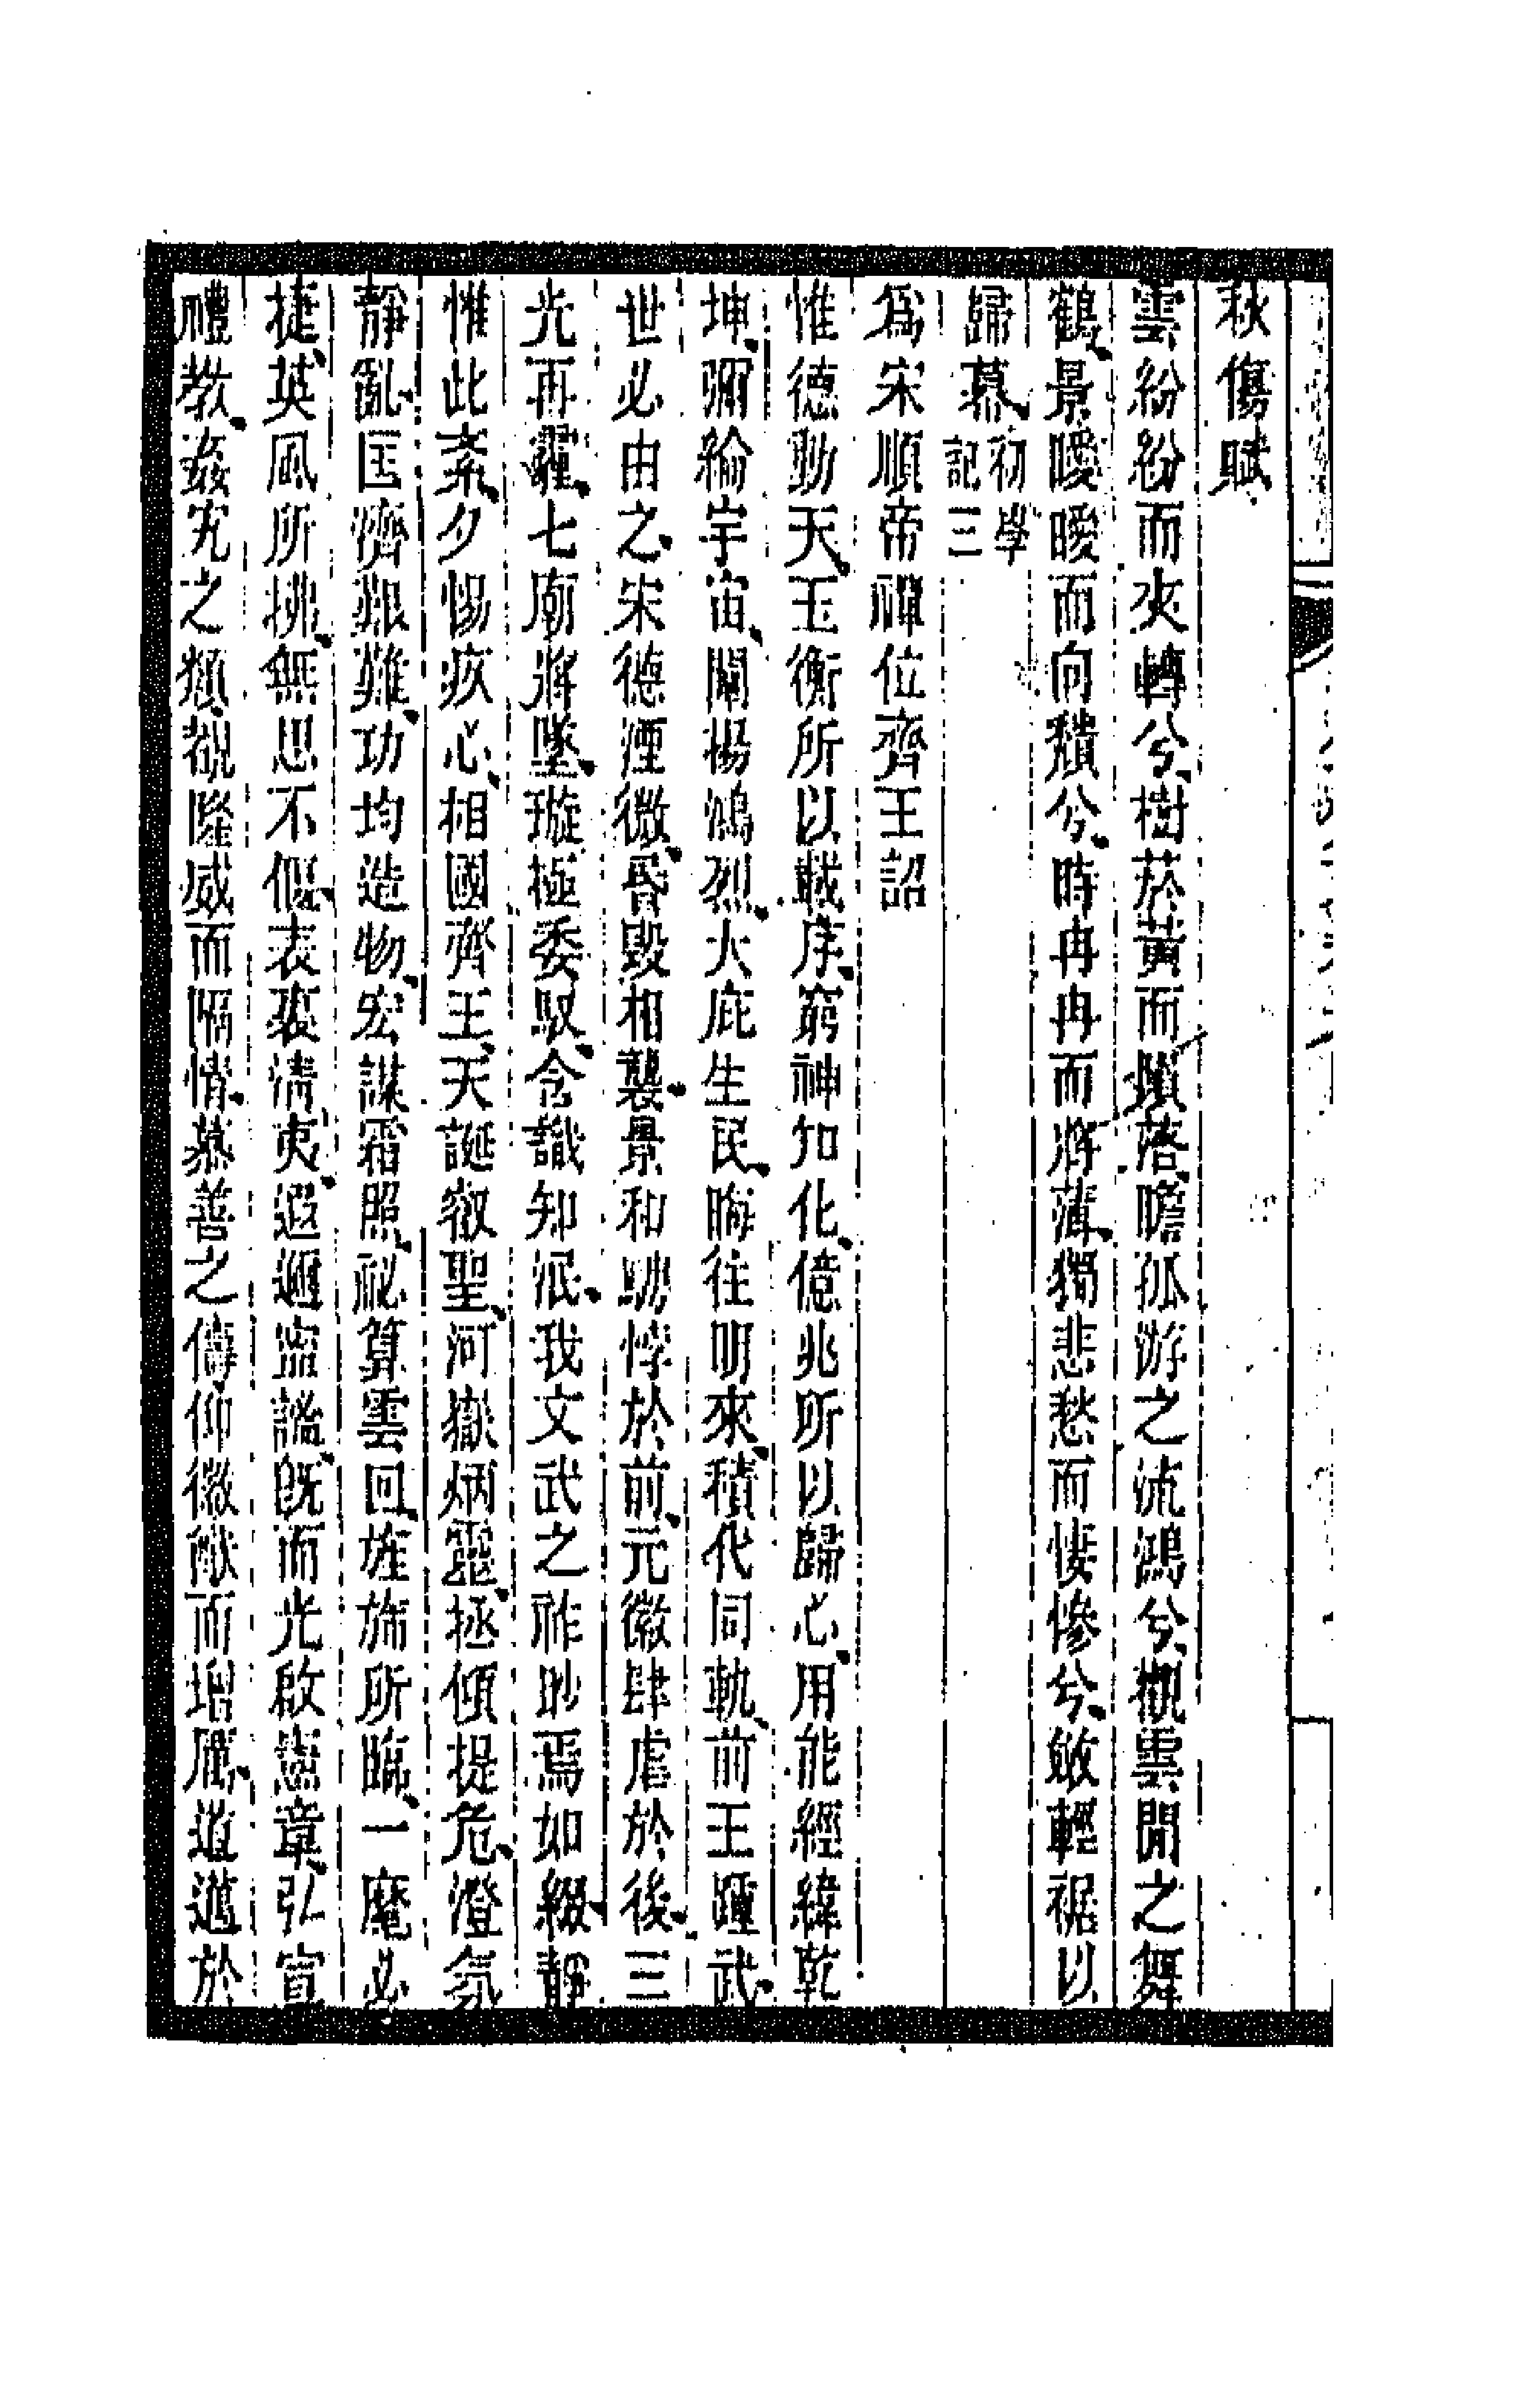 秋傷賦
雲紛紛而水轉兮樹菸黃而隕落瞻孤游之流鴻兮觀雲閒之舞
鶴景曖曖而向頹兮時冉冉而將薄獨悲愁而悽慘兮斂輕裾以
歸慕初學記三
爲宋順帝禪位齊王詔
惟德動天玉衡所以載序窮神知化億兆所以歸心用能經緯乾
坤彌綸宇宙闡揚鴻烈大庇生民晦往明來積代同軌前王踵武
世必由之宋德湮微昏毀相襲景和騁悖於前元徽肆虐於後三
光再霾七廟將墜璇極委馭含識知泯我文武之祚眇焉如綴靜
惟此紊夕惕疚心相國齊王天誕叡聖河嶽炳靈拯傾提危澄氛
靜亂匡濟艱難功均造物宏謀霜照祕算雲回旌旆所臨一麾必
捷英風所拂無思不偃表裏清夷遐邇寧謐旣而光啟憲章弘宣
禮教姦宄之類覩隆威而隔情慕善之儔仰徽猷而增厲道邁於